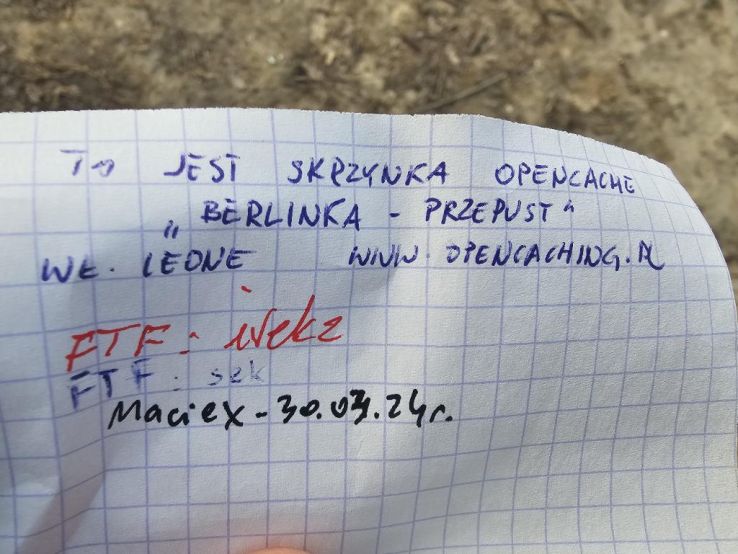 To JEST SKRZYNKA OPENCACHE
„BERLINKA - PRZEPUST"
WŁ. LEONE WWW.OPENCACHING.PL
FTF: irek2
FTF: sek
Maciex - 30.03.24r.